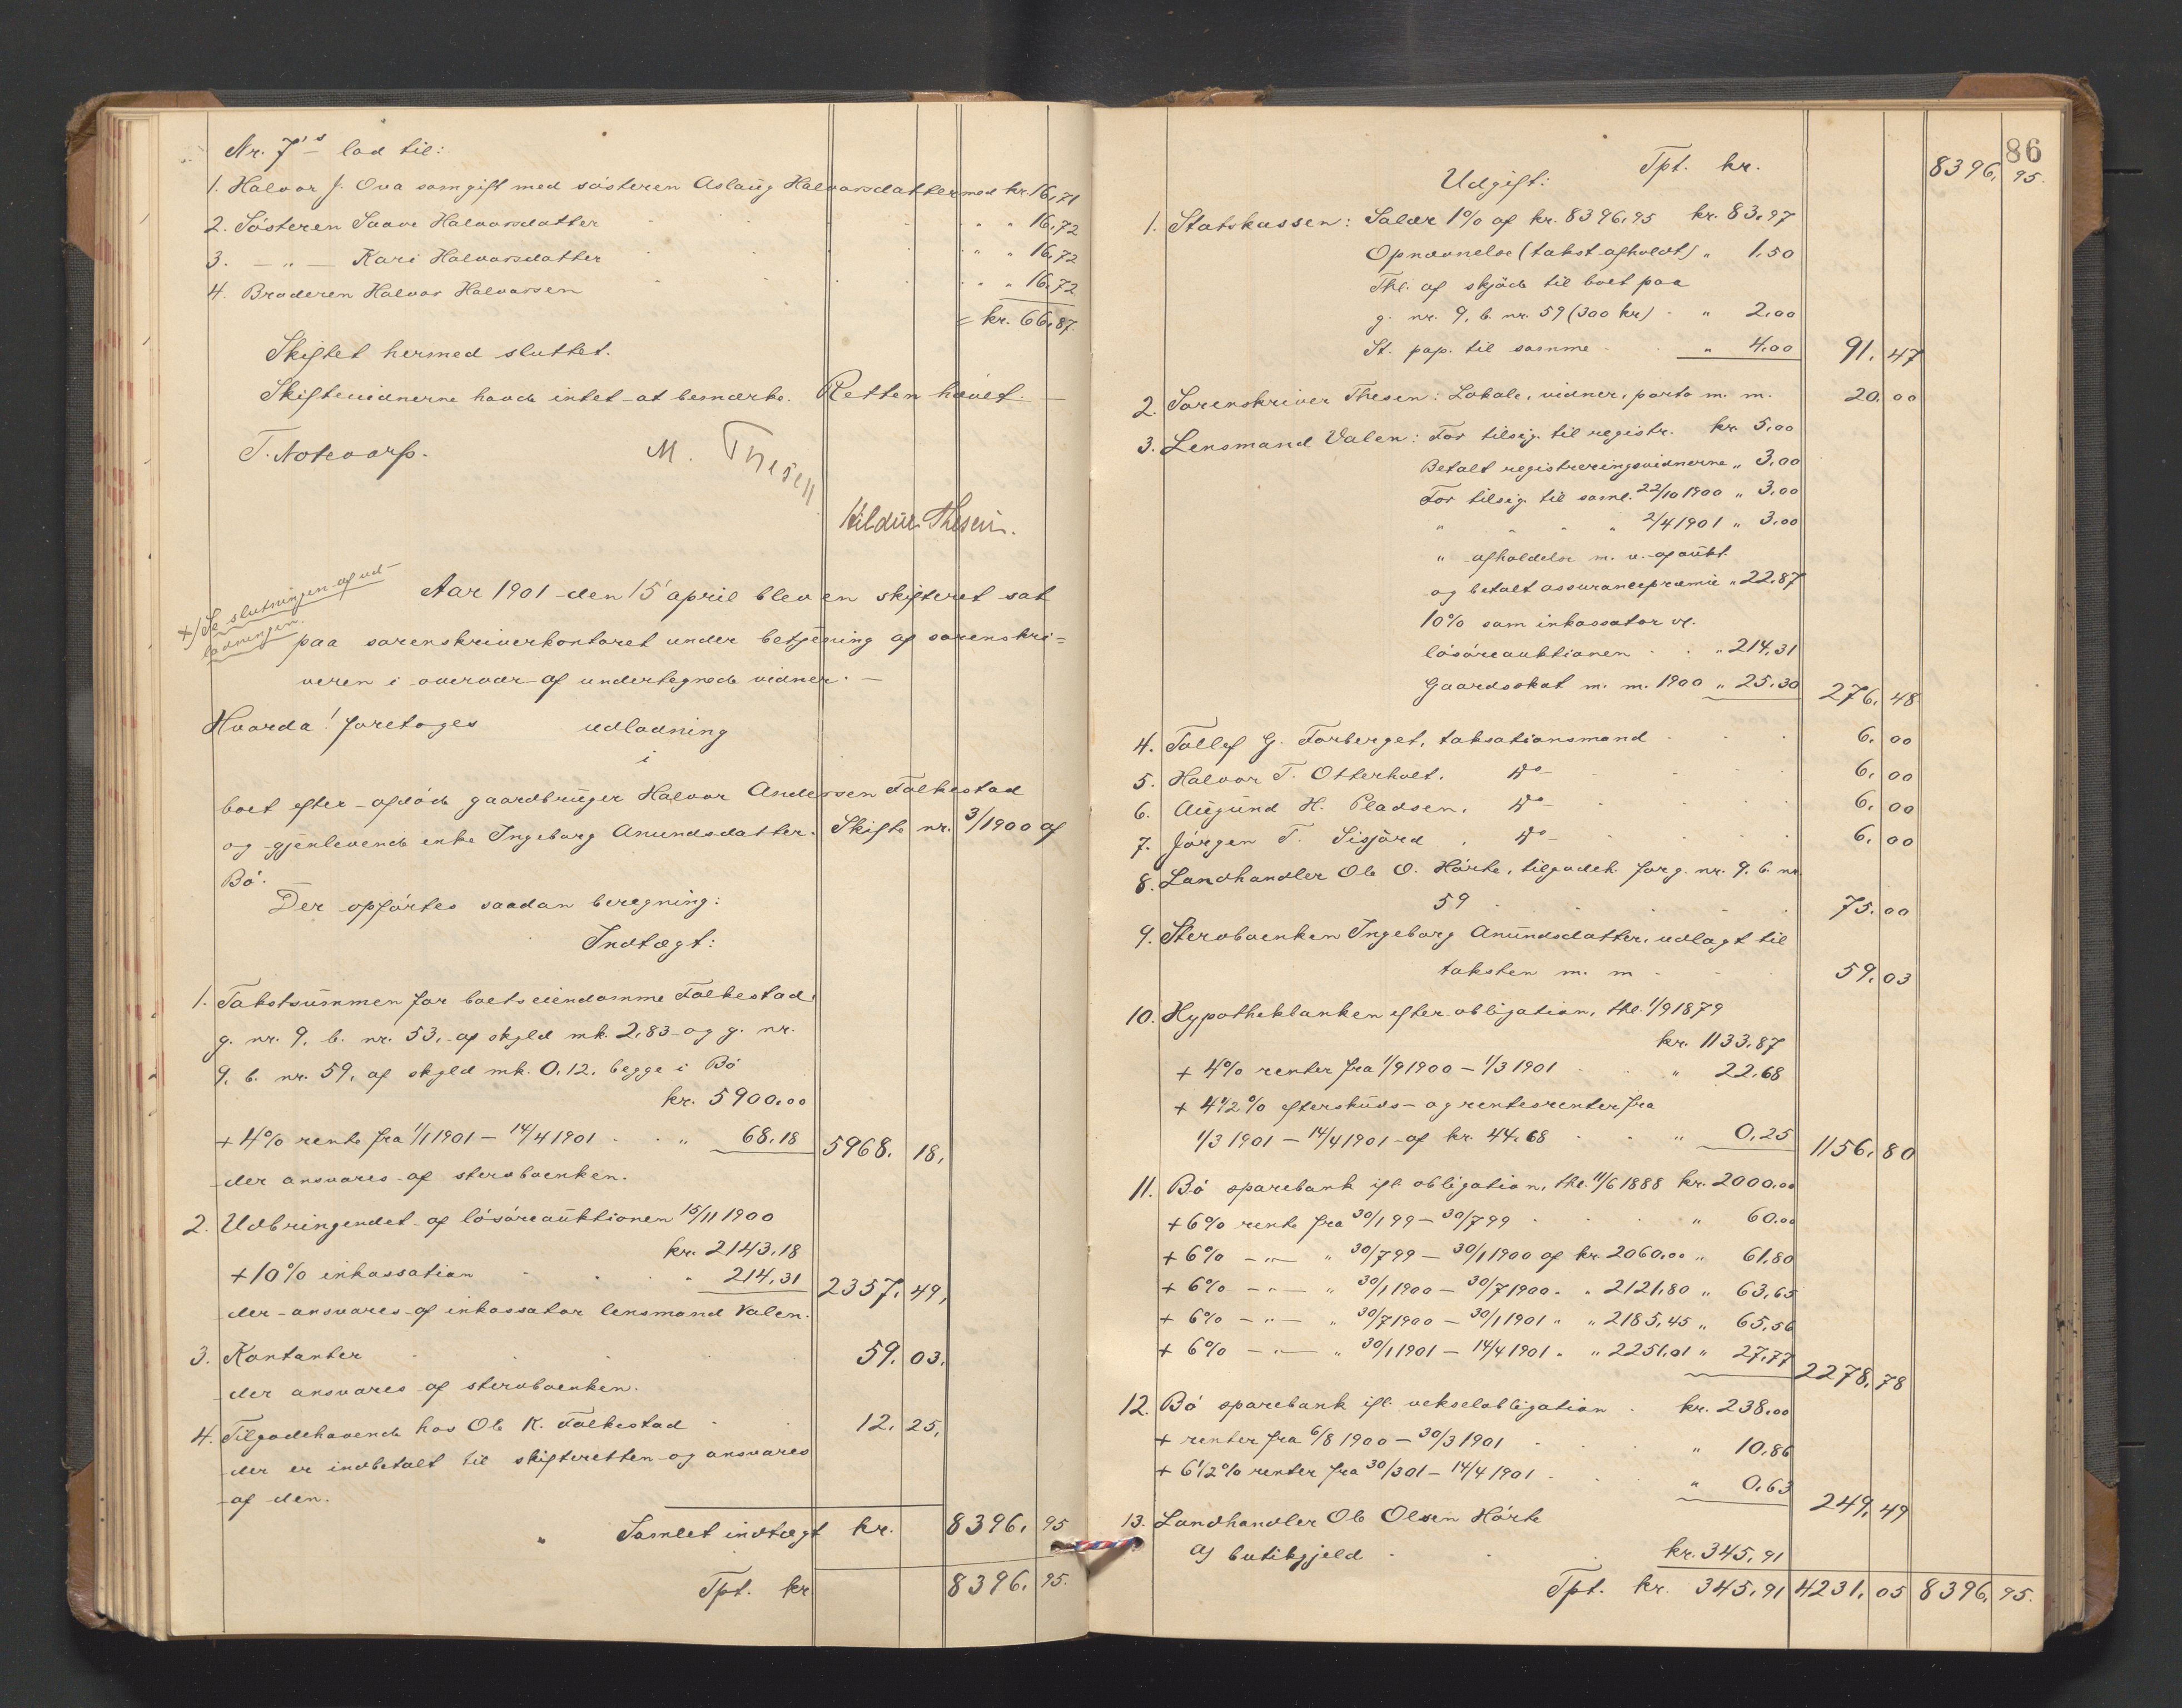 Nr. 7's lod til:
1. Halvor J. Ova somgift med søsteren Aslaug Halvorsdatter med kr. 16,71
2. Søsteren Saave Halvorsdatter " " 16,72
3. — " — Kari Halvorsdatter " " 16,72
4. Broderen Halvor Halvorsen " " 16,72
= kr. 66,87.
Skiftet hermed sluttet.
Skiftevidnerne havde intet at bemærke. Retten hævet. —
T. Notevarp. M. Thesen
Hildur Thesen.
+) Se slutningen af ud-
lodningen.
Aar 1901 den 15 april blev en skifteret sat
paa sorenskriverkontoret under betjening af sorenskri=
veren i overvær af undertegnede vidner. —
Hvorda! foretoges udlodning
i
boet efter afdøde gaardbruger Halvor Andersen Folkestad
og gjenlevende enke Ingeborg Anundsdatter. Skifte nr. 3/1900 af
Bø. —
Der opførtes saadan beregning:
Indtægt:
1. Takstsummen for boets eiendomme Folkestad,
g. nr. 9, b. nr. 53, af skyld mk. 2,83 og g. nr.
9, b. nr. 59, af skyld mk. 0,12, begge i Bø
kr. 5900,00
+ 4% rente fra 1/1 1901 — 14/4 1901 " 68,18 5968, 18,
der ansvares af stervboenken.
2. Udbringendet af løsøreauktionen 15/11 1900
kr. 2143,18
+ 10% inkassation " 214,31 2357, 49,
der ansvares af inkassator lensmand Valen.
3. Kontanter 59, 03,
der ansvares af stervboenken.
4. Tilgodehavende hos Ole K. Folkestad 12, 25,
der er indbetalt til skifteretten og ansvares
af den.
Samlet indtægt kr. 8396, 95
Tpt. kr. 8396, 95.
86
Tpt. kr. 8396, 95.
Udgift:
1. Statskassen: Salær 1% af kr. 8396,95 kr. 83,97
Opnævnelse (takst afholdt) " 1,50
Thl. af skjøde til boet paa
g. nr. 9, b. nr. 59 (300 kr) " 2,00
St. pap. til samme " 4,00 91, 47
2. Sorenskriver Thesen: Lokale, vidner, porto m. m. 20, 00
3. Lensmand Valen: For tilsig. til registr. kr. 5,00
Betalt registreringsvidnerne " 3,00
For tilsig. til saml. 22/10 1900 " 3,00
" " " " 2/4 1901 " 3,00
" afholdelse m. v. af aukt.
og betalt assurancepræmie " 22,87
10% som inkassator v.
løsøreauktionen " 214,31
Gaardsskat m. m. 1900 " 25,30 276, 48
4. Tollef G. Forberget, taksationsmand 6, 00
5. Halvor T. Otterholt, do 6, 00
6. Augund H. Pladsen, do 6, 00
7. Jørgen T. Sisjord, do 6, 00
8. Landhandler Ole O. Hørte, tilgodeh. for g. nr. 9, b. nr.
59 75, 00
9. Stervboenken Ingeborg Anundsdatter, udlagt til
taksten m. m 59, 03
10. Hypothekbanken efter obligation, thl. 1/9 1879
kr. 1133,87
+ 4% renter fra 1/9 1900 — 1/3 1901 " 22,68
+ 4 1/2% efterskuds- og rentesrenter fra
1/3 1901 — 14/4 1901 af kr. 44,68 " 0,25 1156, 80
11. Bø sparebank ifl. obligation, thl. 11/6 1888 kr. 2000,00
+ 6% rente fra 30/1 99 — 30/7 99 " 60,00
+ 6% — " — " 30/7 99 — 30/1 1900 af kr. 2060,00 " 61,80
+ 6% — " — " 30/1 1900 — 30/7 1900 " " 2121,80 " 63,65
+ 6% — " — " 30/7 1900 — 30/1 1901 " " 2185,45 " 65,56
+ 6% — " — " 30/1 1901 — 14/4 1901 " " 2251,01 " 27,77 2278, 78
12. Bø sparebank ifl. vekselobligation kr. 238,00
+ renter fra 6/8 1900 — 30/3 1901 " 10,86
+ 6 1/2% renter fra 30/3 01 — 14/4 1901 " 0,63 249, 49
13. Landhandler Ole Olsen Hørte
a) butikgjeld kr. 345,91
Tpt. kr. 345,91 4231, 05 8396, 95.